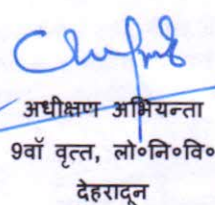 अधीक्षण अभियन्ता
9वॉ वृत्त, लो०नि०वि०
देहरादून